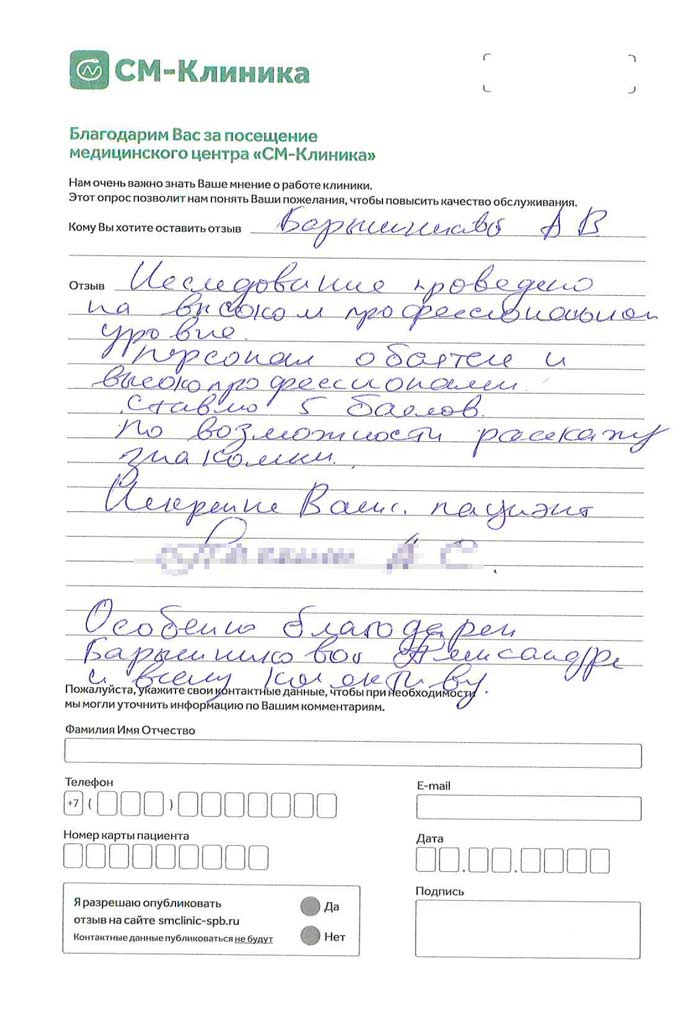 СМ-Клиника
Благодарим Вас за посещение
медицинского центра «СМ-Клиника»
Нам очень важно знать Ваше мнение о работе клиники.
Этот опрос позволит нам понять Ваши пожелания, чтобы повысить качество обслуживания.
Кому Вы хотите оставить отзыв Барышникова А В
Отзыв Иследование проведено
на высоком профессиональном
уровне.
Персонал обаятелен и
высокопрофессионален.
Ставлю 5 баллов.
По возможности расскажу
знакомым.
Искренне Ваш. пациент
А С.
Особенно благодарен
Барышниковой Александре
и всему колективу.
Пожалуйста, укажите свои контактные данные, чтобы при необходимости
мы могли уточнить информацию по Вашим комментариям.
Фамилия Имя Отчество
Телефон
E-mail
+7 ( )
Номер карты пациента
Дата
Я разрешаю опубликовать
отзыв на сайте smclinic-spb.ru
Контактные данные публиковаться не будут
Да
Нет
Подпись